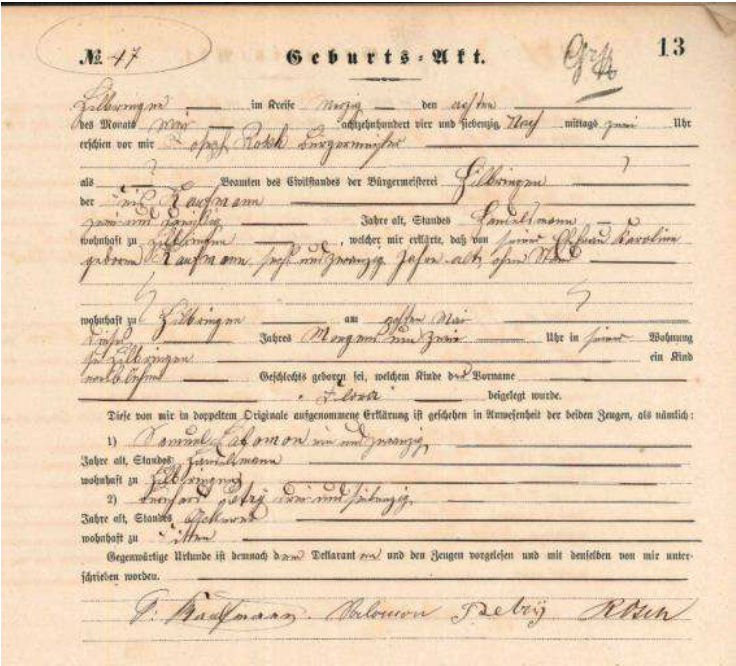 № 47 Geburts-Akt. 13
Hilbringen im Kreise Merzig den achten
des Monats Mai achtzehnhundert vier und siebenzig Nach mittags zwei Uhr
erschien vor mir Joseph Rosch Bürgermeister
als Beamten des Civilstandes der Bürgermeisterei Hilbringen
der Kaufmann
zwei und dreißig Jahre alt, Standes Handelsmann
wohnhaft zu Hilbringen, welcher mir erklärte, daß von seiner Ehefrau Karoline
geborene Kaufmann, sechs und zwanzig Jahre alt, ohne Stand
wohnhaft zu Hilbringen am achten Mai
dieses Jahres Morgens um zwei Uhr in seiner Wohnung
zu Hilbringen ein Kind
weiblichen Geschlechts geboren sei, welchem Kinde der Vorname
Flora beigelegt wurde.
Diese von mir in doppeltem Originale aufgenommene Erklärung ist geschehen in Anwesenheit der beiden Zeugen, als nämlich:
1) Samuel Salomon ein und zwanzig
Jahre alt, Standes Handelsmann
wohnhaft zu Hilbringen
2) drei und siebenzig
Jahre alt, Standes Ackerer
wohnhaft zu
Gegenwärtige Urkunde ist demnach dem Deklaranten und den Zeugen vorgelesen und mit denselben von mir unter-
schrieben worden.
Kaufmann. Salomon Rosch